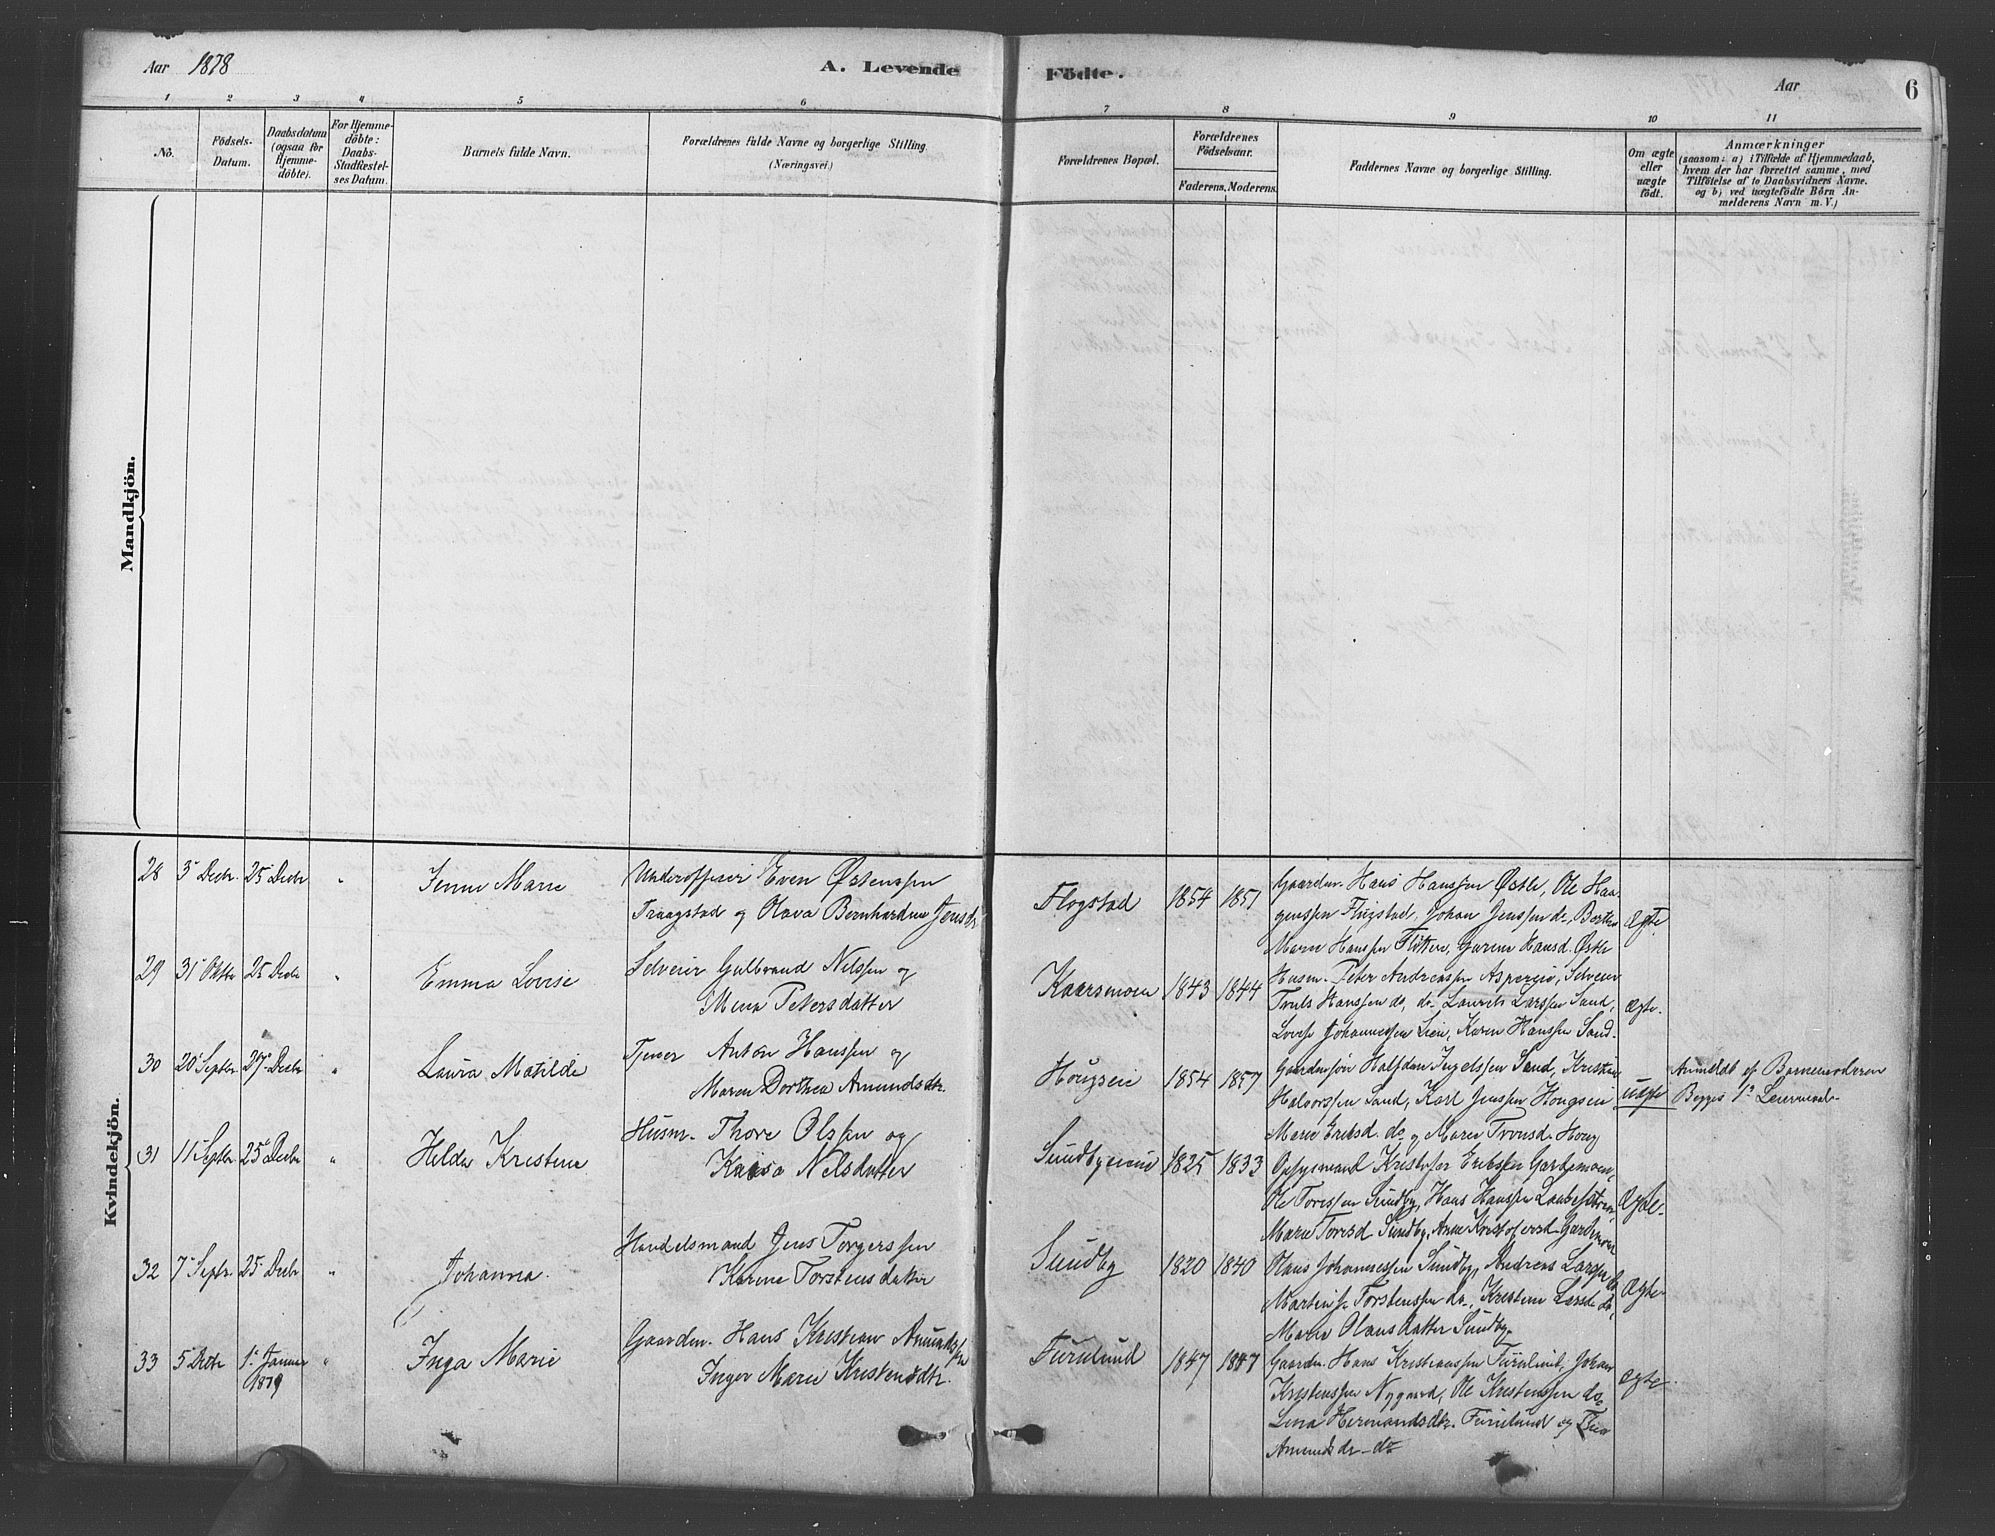 Aar 1878
A. Levende
Födte.
Aar
6
1 2 3 4 5 6 7 8 9 10 11
No.
Födsels-
Datum.
Daabsdatum
(ogsaa for
Hjemme-
döbte).
For Hjemme-
döbte:
Daabs-
Stadfæstel-
ses Datum.
Barnets fulde Navn.
Forældrenes fulde Navne og borgerlige Stilling
(Næringsvei.)
Forældrenes Bopæl.
Forældrenes
Födselsaar.
Faderens. Moderens.
Faddernes Navne og borgerlige Stilling.
Om ægte
eller
uægte
födt.
Anmærkninger
(saasom: a) i Tilfælde af Hjemmedaab,
hvem der har forrettet samme, med
Tilföielse af to Daabsvidners Navne.
og b) ved uægtefödte Börn An-
melderens Navn m. V.)
Mandkjön.
Kvindekjön.
28 3 Decbr. 25 Decbr " Jenne Marie
Underofficier Even Østenssen
Traagstad og Olava Bernhardine Jensdr
Flogstad 1854 1851
Gaardm. Hans Hanssen Østle, Ole Haa-
genssen Flugstad, Johan Jenssen do, Berthe
Marie Hanssen Flitten, Gurene Hansd. Østle
Ægte
29 31 Oktbr 25 Decbr " Emma Lovise
Selveier Gulbrand Nilssen og
Mina Petersdatter
Kaarsmoen 1843 1844
Husm. Peter Andreassen Aspergið, Selveier
Truls Hanssen do, do. Laurits Larssen Sand,
Lovise Johannessen Lien, Karen Hanssen Sand.
Ægte.
30 20 Septbr 27 Decbr " Laura Matilde
Tjener Anton Hanssen og
Maren Dorthea Amundsdtr.
Hougseie 1854 1857
Gaardmsøn Halfdan Ingelssen Sand, Kristian
Halvorssen Sand, Karl Jenssen Hougseie
Marie Eriksd. do og Maren Tronsd. Houg
uægte
Anmeldt af Barnemoderen
Begges 1ste Leiermaal.
31 11 Septbr 25 Decbr " Helda Kristine
Husm. Thore Olssen og
Kaisa Nelsdatter
Sundbyeie 1825 1833
Opsynsmand Kristofer Erikssen Gardemoen,
Ole Toressen Sundby, Hans Hanssen
Marie Toresd. Sundby, Anne Kristofersd. Gardemoen
Ægte.
32 7 Septr. 25 Decbr " Johanna.
Handelsmand Jens Torgerssen
Karine Torstensdatter
Sundby 1820 1840
Olaus Johannessen Sundby, Andreas Larssen do,
Martin Torstenssen do, Kristine Larsdr do,
Marie Olausdatter Sundby.
Ægte
33 5 Decbr 1 Januar "
1879
Inga Marie
Gaardm. Hans Kristian Amundssen
Inger Marie Kristensdtr.
Furulund 1847 1847
Gaardm. Hans Kristianssen Furulund, Johan
Kristenssen Nygaard, Ole Kristenssen do
Lina Hermandsdtr. Furulund og
Amundsdr. do
Ægte